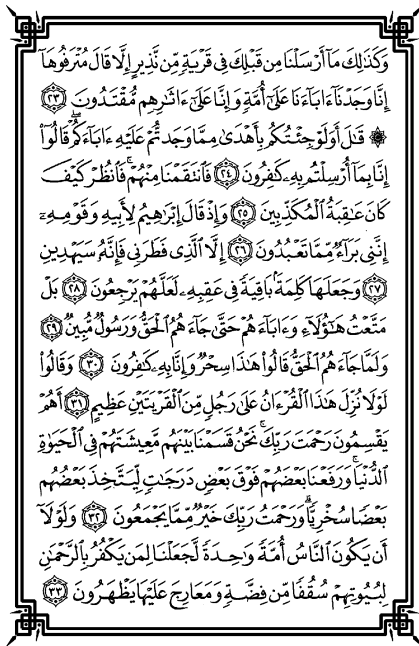 وَكَذَٰلِكَ مَآ أَرْسَلْنَا مِن قَبْلِكَ فِي قَرْيَةٍ مِّن نَّذِيرٍ إِلَّا قَالَ مُتْرَفُوهَآ
إِنَّا وَجَدْنَآ ءَابَآءَنَا عَلَىٰٓ أُمَّةٍ وَإِنَّا عَلَىٰٓ ءَاثَٰرِهِم مُّقْتَدُونَ ٢٣
۞ قَٰلَ أَوَلَوْ جِئْتُكُم بِأَهْدَىٰ مِمَّا وَجَدتُّمْ عَلَيْهِ ءَابَآءَكُمْ ۖ قَالُوٓا۟
إِنَّا بِمَآ أُرْسِلْتُم بِهِۦ كَٰفِرُونَ ٢٤ فَٱنتَقَمْنَا مِنْهُمْ ۖ فَٱنظُرْ كَيْفَ
كَانَ عَٰقِبَةُ ٱلْمُكَذِّبِينَ ٢٥ وَإِذْ قَالَ إِبْرَٰهِيمُ لِأَبِيهِ وَقَوْمِهِۦٓ
إِنَّنِي بَرَآءٌ مِّمَّا تَعْبُدُونَ ٢٦ إِلَّا ٱلَّذِي فَطَرَنِي فَإِنَّهُۥ سَيَهْدِينِ
٢٧ وَجَعَلَهَا كَلِمَةًۢ بَاقِيَةً فِي عَقِبِهِۦ لَعَلَّهُمْ يَرْجِعُونَ ٢٨ بَلْ
مَتَّعْتُ هَٰٓؤُلَآءِ وَءَابَآءَهُمْ حَتَّىٰ جَآءَهُمُ ٱلْحَقُّ وَرَسُولٌ مُّبِينٌ ٢٩
وَلَمَّا جَآءَهُمُ ٱلْحَقُّ قَالُوا۟ هَٰذَا سِحْرٌ وَإِنَّا بِهِۦ كَٰفِرُونَ ٣٠ وَقَالُوا۟
لَوْلَا نُزِّلَ هَٰذَا ٱلْقُرْءَانُ عَلَىٰ رَجُلٍ مِّنَ ٱلْقَرْيَتَيْنِ عَظِيمٍ ٣١ أَهُمْ
يَقْسِمُونَ رَحْمَتَ رَبِّكَ ۚ نَحْنُ قَسَمْنَا بَيْنَهُم مَّعِيشَتَهُمْ فِي ٱلْحَيَوٰةِ
ٱلدُّنْيَا ۚ وَرَفَعْنَا بَعْضَهُمْ فَوْقَ بَعْضٍ دَرَجَٰتٍ لِّيَتَّخِذَ بَعْضُهُم
بَعْضًا سُخْرِيًّا ۗ وَرَحْمَتُ رَبِّكَ خَيْرٌ مِّمَّا يَجْمَعُونَ ٣٢ وَلَوْلَآ
أَن يَكُونَ ٱلنَّاسُ أُمَّةً وَٰحِدَةً لَّجَعَلْنَا لِمَن يَكْفُرُ بِٱلرَّحْمَٰنِ
لِبُيُوتِهِمْ سُقُفًا مِّن فِضَّةٍ وَمَعَارِجَ عَلَيْهَا يَظْهَرُونَ ٣٣